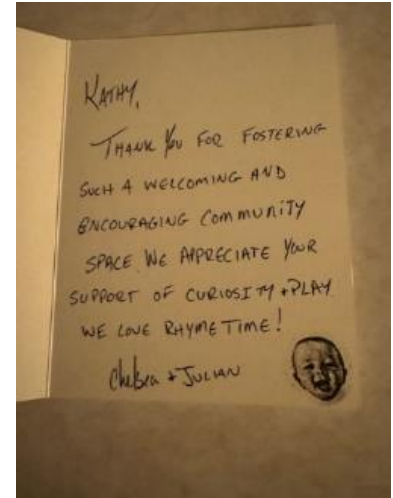 KATHY,
THANK YOU FOR FOSTERING
SUCH A WELCOMING AND
ENCOURAGING COMMUNITY
SPACE. WE APPRECIATE YOUR
SUPPORT OF CURIOSITY + PLAY
WE LOVE RHYME TIME!
Chelsea + JULIAN